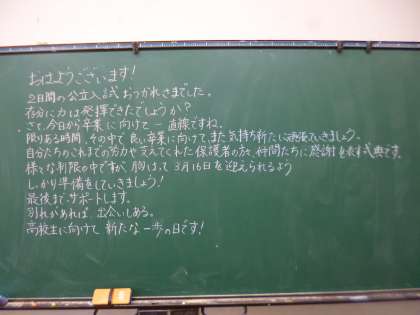 おはようございます!
2日間の公立入試おつかれさまでした。
存分に力は発揮できたでしょうか?
さて、今日から卒業に向けて一直線ですね。
限りある時間、その中で良い卒業に向けて、また気持ち新たに頑張っていきましょう。
自分たちのこれまでの努力や支えてくれた保護者の方々、仲間たちに感謝を表す式典です。
様々な制限の中ですが、胸はって3月16日を迎えられるよう
しっかり準備をしていきましょう!
最後まで、サポートします。
別れがあれば、出会いもある。
高校生に向けて新たな一歩の日です!